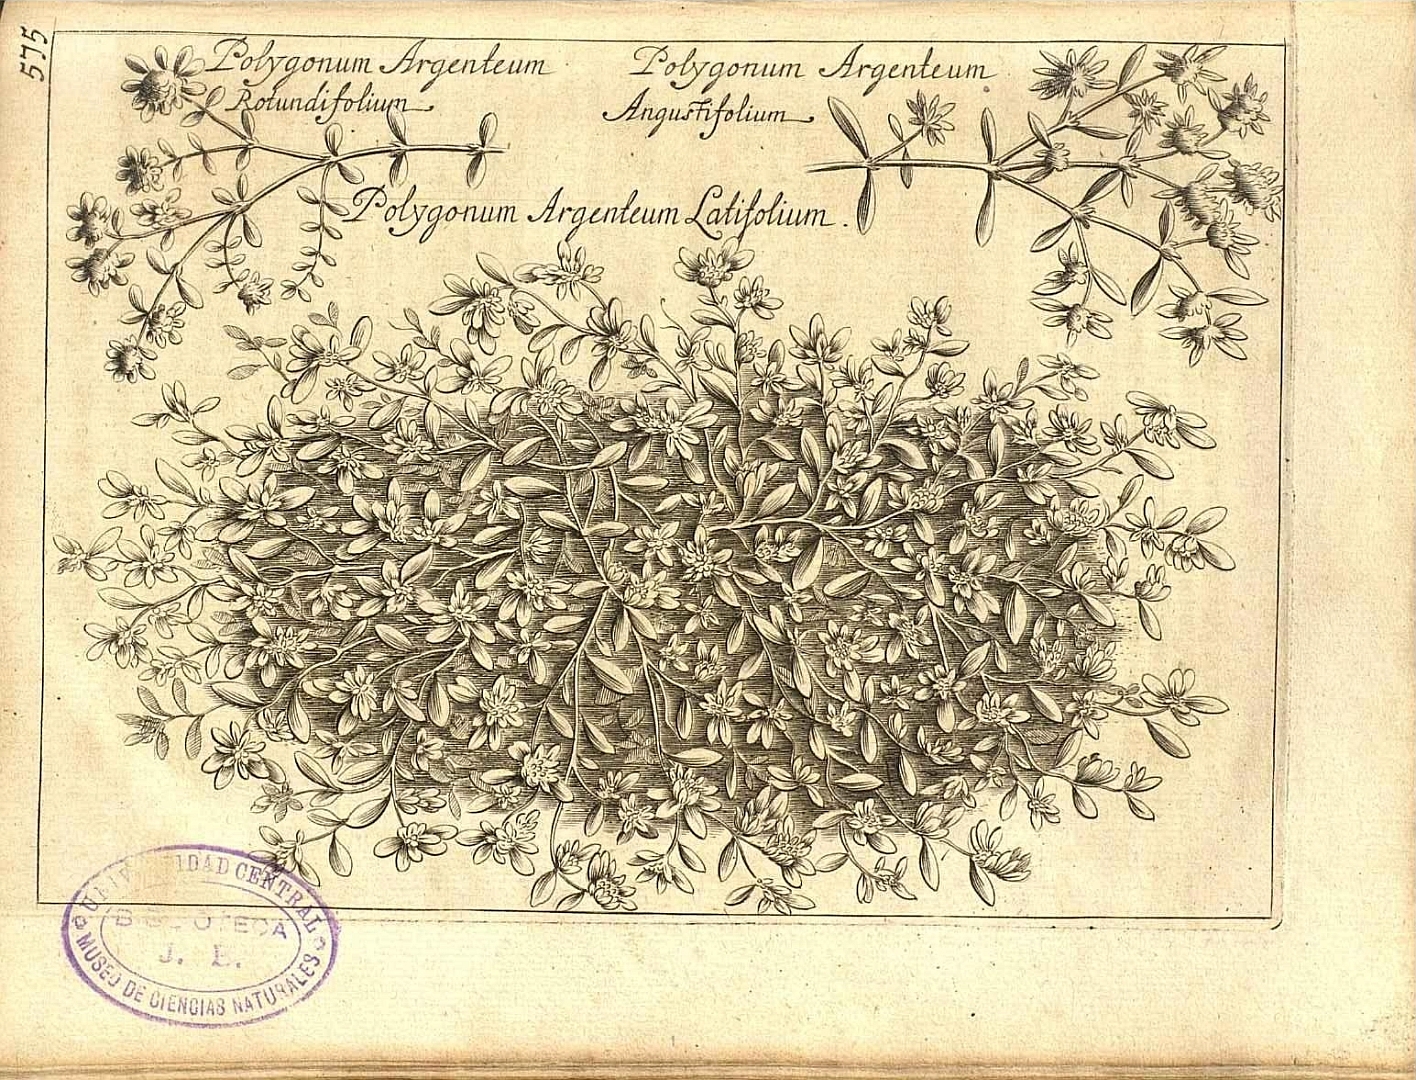 575
Polygonum Argenteum
Rotundifolium
Polygonum Argenteum
Angustifolium
Polygonum Argenteum Latifolium.
UNIVERSIDAD CENTRAL
BIBLIOTECA
J. B.
MUSEO DE CIENCIAS NATURALES